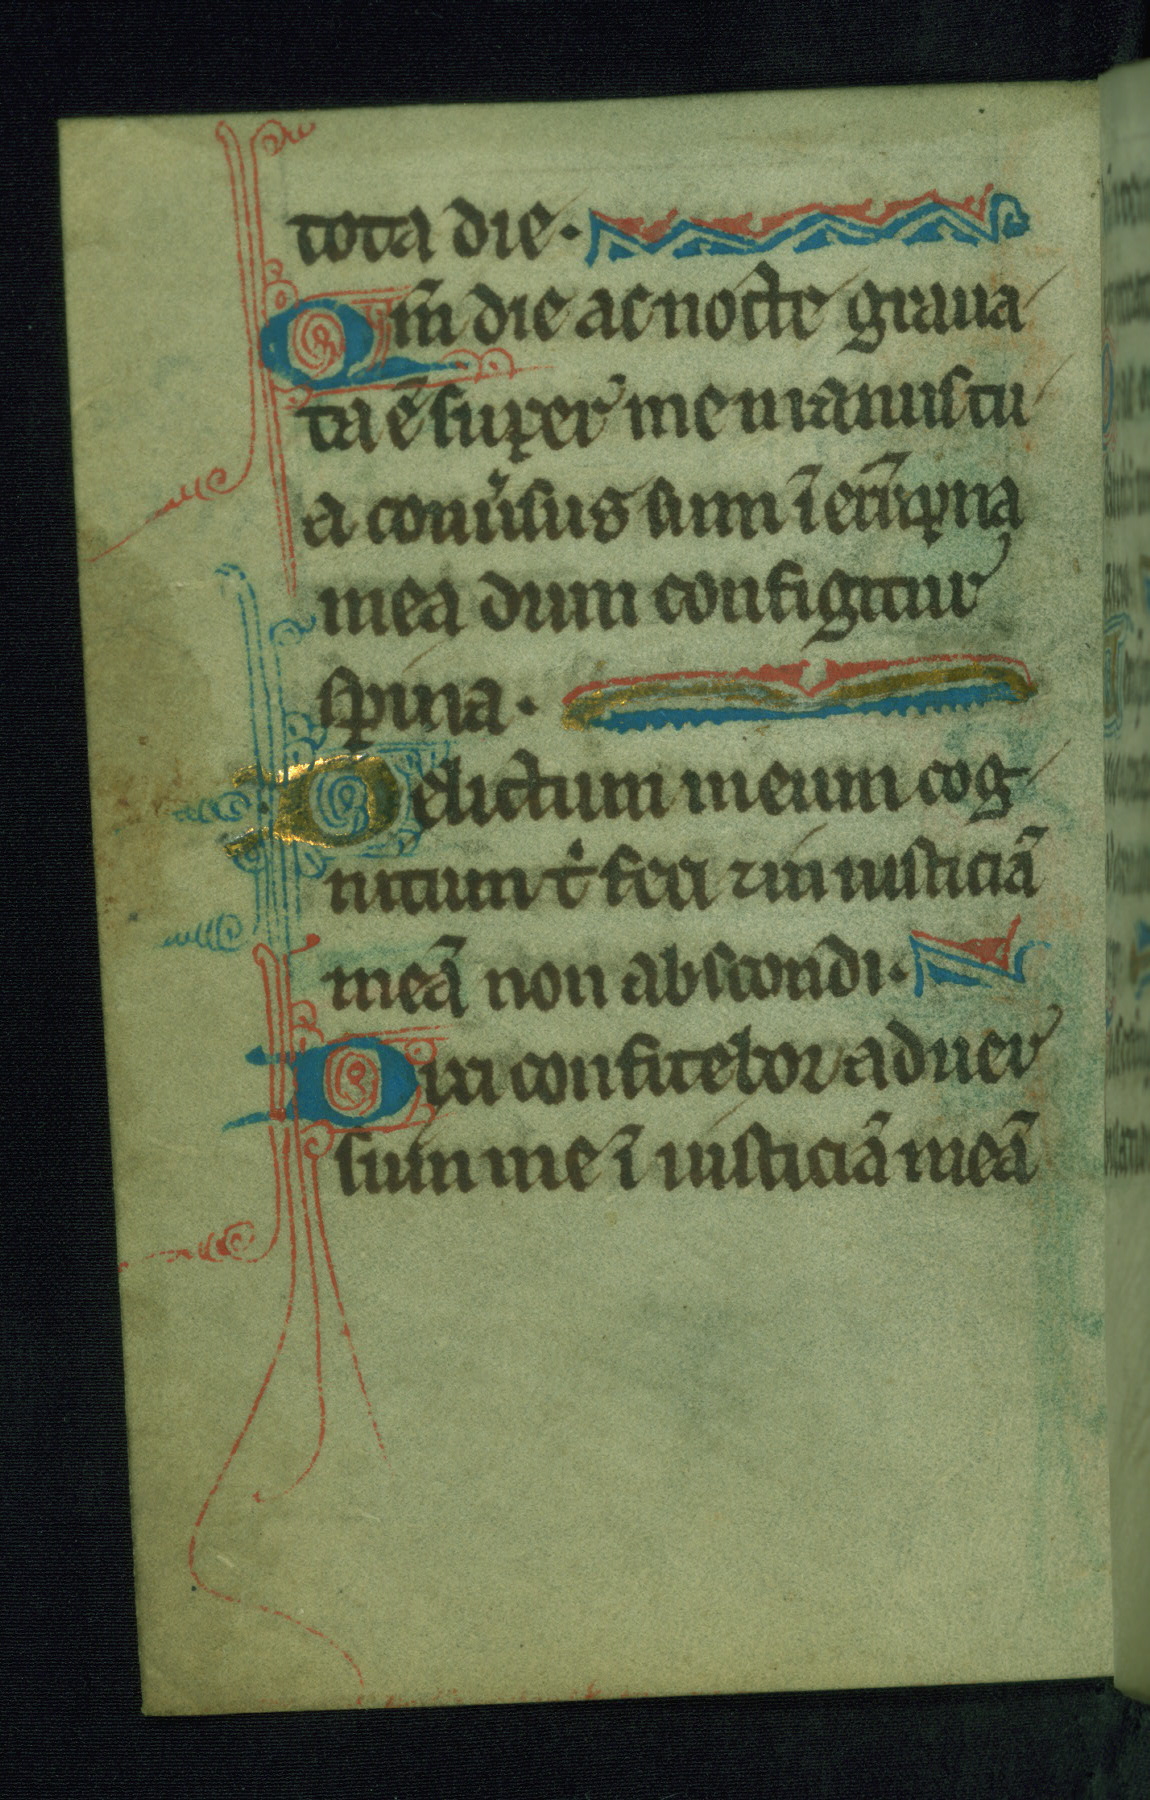 tota die·
Qm̄ die ac nocte graua
ta ē super me manus tu
a conu̓sus sum ī erūpna
mea dum configitur
spina·
Delictum meum cog
nitum t̓ feci ⁊ in iusticiā
meā non abscondi·
Dixi confitebor aduer
sum me ī iusticiā meā